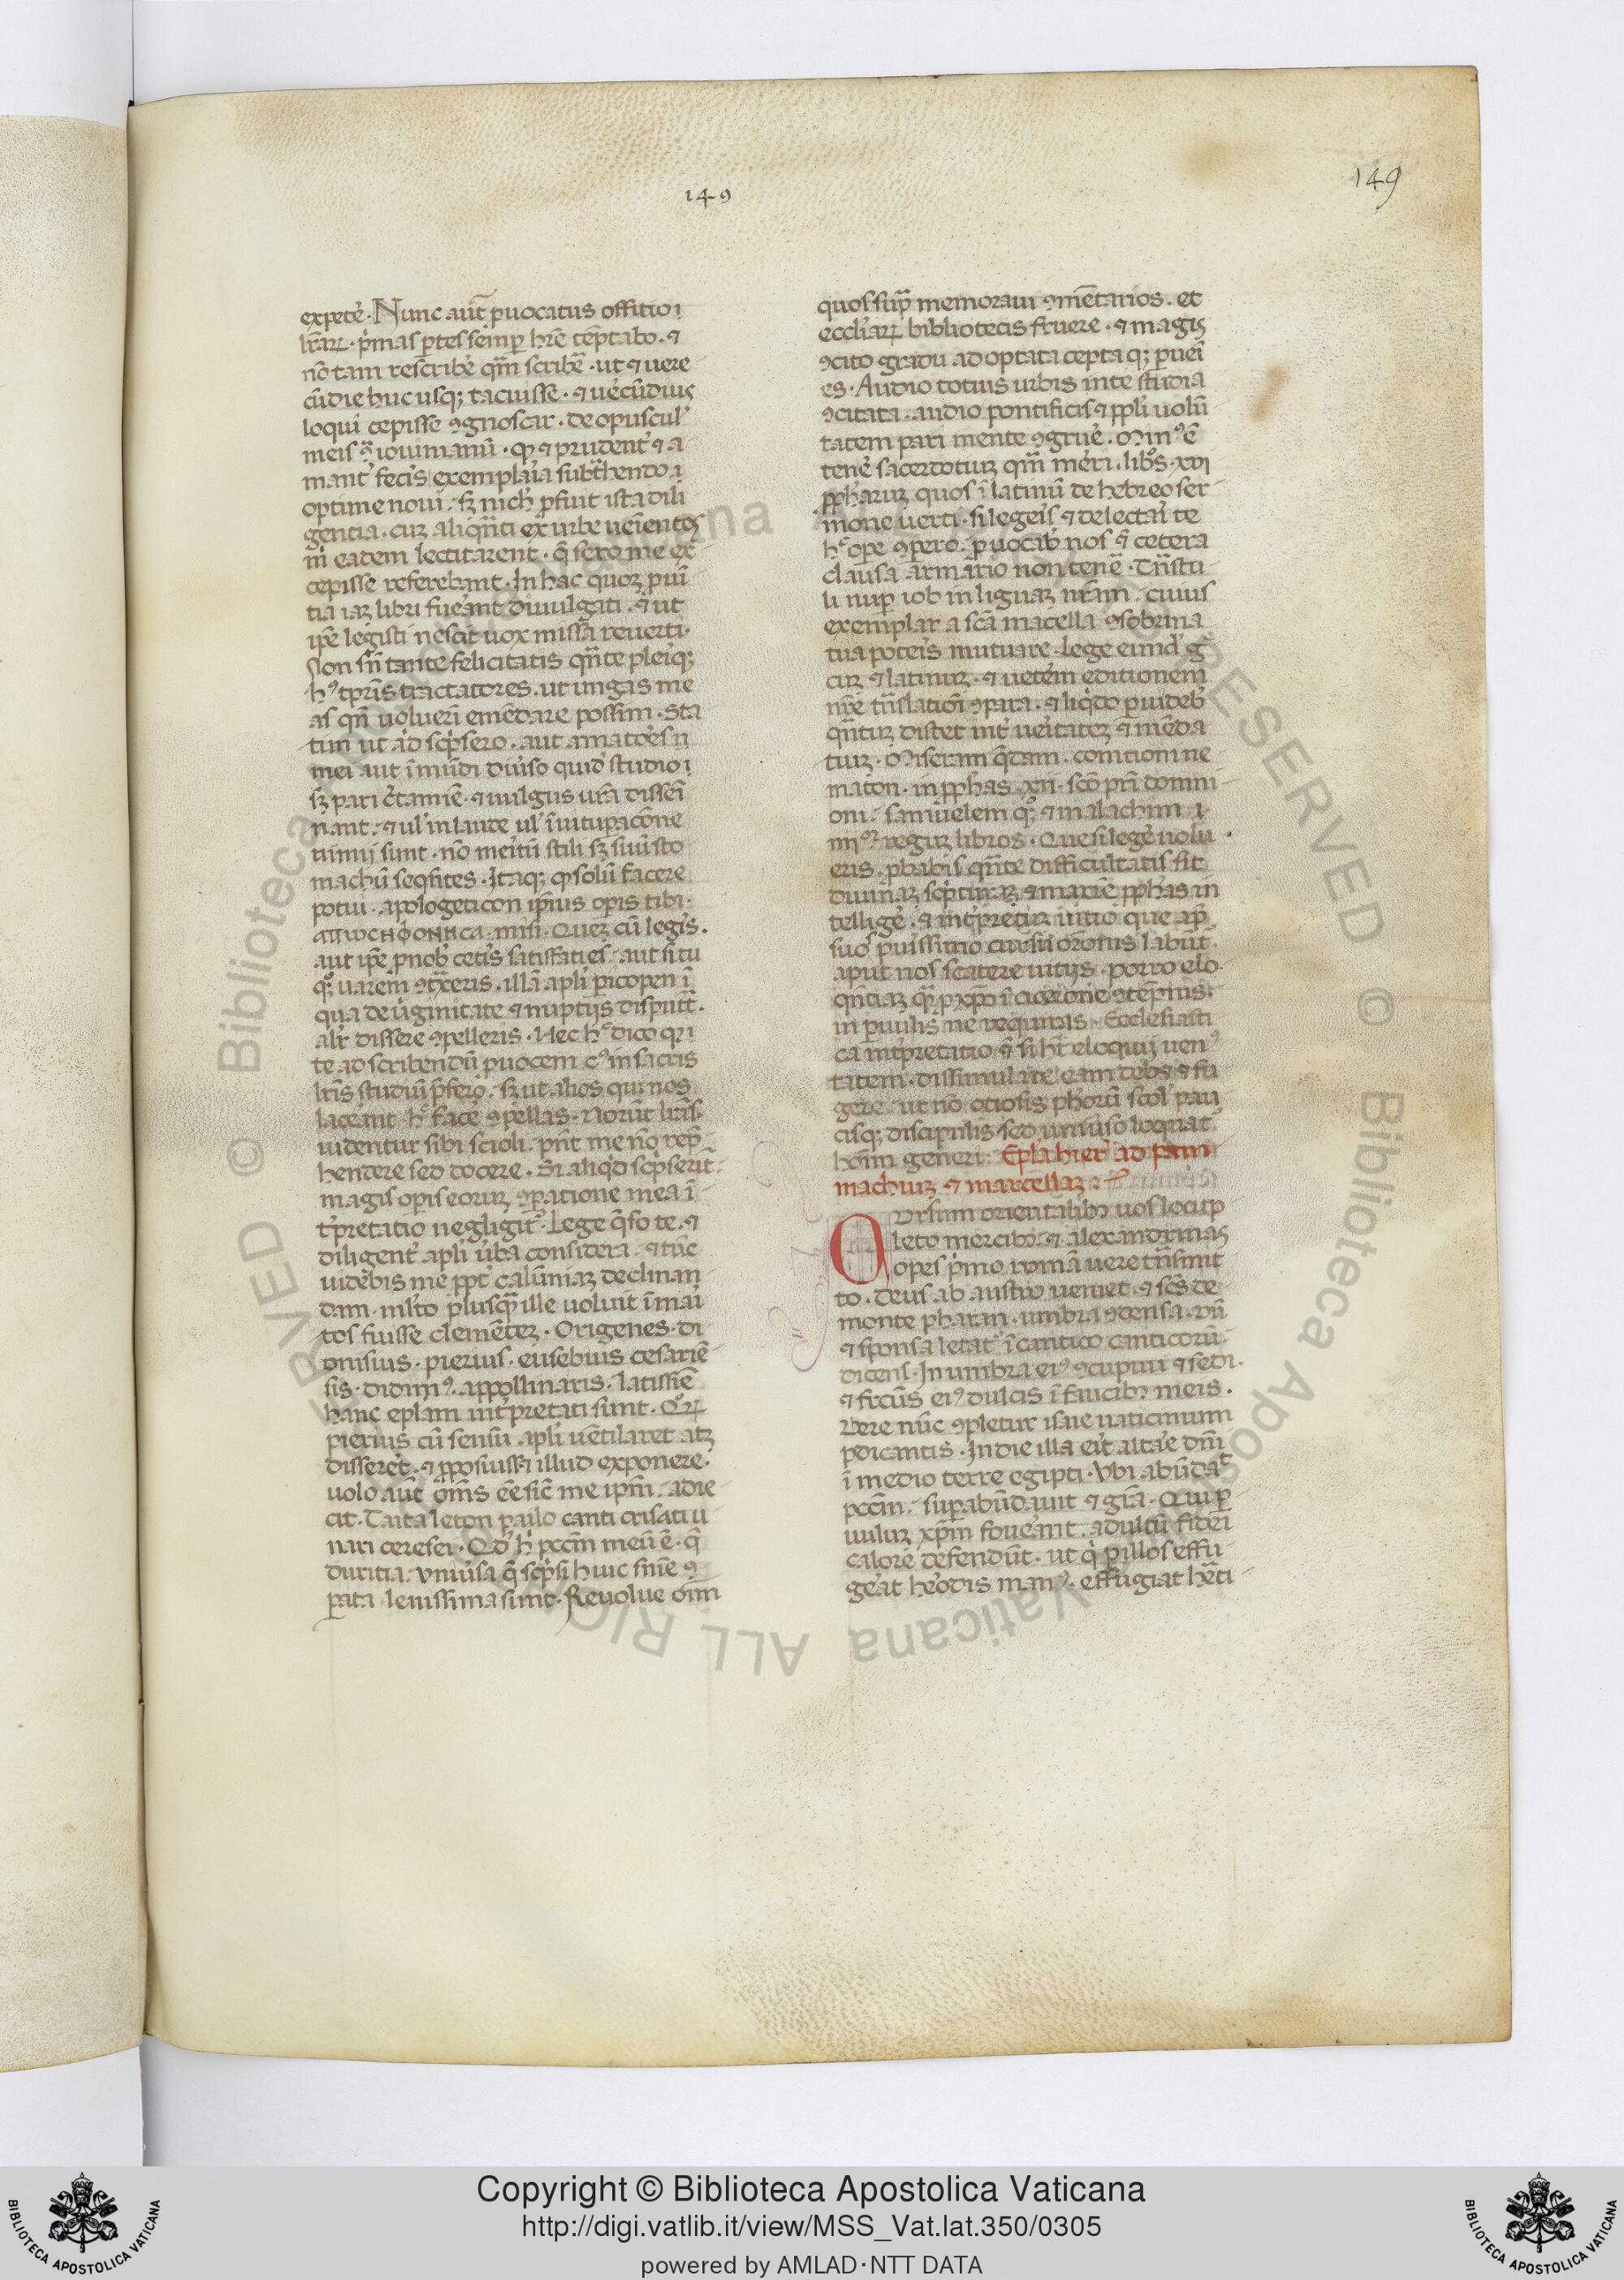 149
149
expetẻ. Nunc aut̃ puocatus offitio i
lr̃aꝝ. p̃mas ptes semꝑ hr̃e tẽptabo. ⁊
nõ tam rescribẻ qm̃ scribẻ. ut ⁊ uere
cũdie huc usqꝫ tacuisse. ⁊ uecũdius
loqui cepisse ꝯgnoscar. de opuscul'
meis ꝯ̃ iouinianũ. ꝙ ⁊ prudent̓ ⁊ a
mant̓ fecis exemplaria subt̃hendo i
optime noui. sꝫ nich' ꝓfuit ista dili
gentia. cuꝫ aliqñti ex urbe ueñientes
m̓ eadem lectitarent. q̃ sero me ex
cepisse referebant. In hac quoꝫ ꝓuĩ
tia iaꝫ libri fuẻant diuulgati. ⁊ ut
ip̃e legisti nescit uox missa reuerti.
Non sũ tante felicitatis qñte pleiqꝫ
hꝰ tp̃ris tractatores. ut nugas me
as qñ uoluerĩ emẽdare possim. Sta
tim ut aỉd scp̃sero. aut amatoẻs
mei aut ĩmũdi diuẻso quid' studio i
sꝫ pari c̓tamiẽ. ⁊ uulgus ur̃a dissẽi
nant. ⁊ ul' in laude ul' ĩ uituꝑacõne
nimij sunt. nõ meitũ stili sꝫ suũ sto
machũ seq̃ntes. Itaqꝫ ꝙ solũ facere
potui. apologeticon ip̃ius opis tibi.
misi. Queꝫ cũ legis.
aut ip̃e ꝓ nob' cetis satisfaties. aut si tu
qꝫ uarem ꝯt̃xeris. illã apl'i picopen ĩ
qua de ủginitate ⁊ nuptijs disputt̃.
alr̃ dissere ꝯpelleris. Nec hͨ dico qͥ i
te ad scribendũ ꝓuocem cꝰ in sacris
lr̃is studiũ p̃fero. sꝫ ut alios qui nos
laceant. hͨ facẻ ꝯpellas. Norũt lr̃as.
uidentur sibi scioli. pñt me nõ repͥ
hendere sed docere. Si aliqͥd scp̃serit.
magis opis eorum ꝯparatione mea ĩ
t̓pretatio negligit̃. Lege q̃so te. ⁊
diligent̓ apl'i ủba considera. ⁊ tũc
uidebis me ppt̓ calũniaꝫ declinan
dam. ml'to plusqͣꝫ ille uoluit ĩ mai
tos fuisse clemẽteꝫ. Origenes. di
onisius. pierius. eusebius cesariẽ
sis. didimꝰ. appollinaris. latissiẽ
hanc eplam int̓pretati sunt. Qͦꝝ
pierius cũ sensũ apl'i uẽtilaret atꝫ
disseret. ⁊ ꝓposuissꝫ illud exponere.
uolo aut̃ om̃s eẻ sic̃ me ip̃m. adie
cit. Taita leton pailo canti crisati u
nari cerefei. Qd' h' pcc̃m meũ ẽ. q̃
duritia. Vniủsa q̃ scp̃si huic fnie ꝯ
parata lenissima sunt. Reuolue oĩm
quos suꝑ memoraui ꝯmẽtarios. et
eccl'iaꝝ bibliotecis fruere. ⁊ magis
ꝯcito gradu ad optata ceptaqꝫ ꝑuei
es. Audio totius urbis in te studia
ꝯcitata. audio pontificis ⁊ pp̃li uolũ
tatem pari mente ꝯgruẻ. Minꝰ ẽ
tenẻ sacerdotiuꝫ qm̃ mẻri. libꝰs xvi
pp̃harum quos ĩ latinũ de hebreo ser
mone uerti. si legeis ⁊ delectai te
hͨ ope ꝯpero. ꝓuocab' nos ⁊ cetera
clausa armario non tenẻ. Tñstu
li nuꝑ iob in liguaꝫ nr̃am. cuius
exemplar a sc̃a macella ꝯsobrina
tua poteis mutuare. Lege eund' gͥ
cuꝫ ⁊ latinuꝫ. ⁊ uetem̓ editionem
nr̃e tñslationi ꝯpara. ⁊ liqͥdo ꝓuideb'
qñtuꝫ distet int̓ ueitateꝫ ⁊ mẽda
tiuꝫ. Miseram q̃dam. comtioni ne
maton. in pp̃has xii. sc̃o pr̃i domni
oni. samuelem qꝫ ⁊ malachim i
iiiiͦꝝ reguꝫ libros. Que si legẻ uolu
eris. ꝓbabis qñte difficultatis sit
diuinaꝫ scp̃turaꝫ ⁊ maxiẽ pp̃has in
telligẻ. ⁊ int̓pretuꝫ uitio que ap̃
suos purissimo cursu or̃onis labũt̃.
aput nos scatere uitijs. porro elo
qñtiaꝫ qͣm ꝓ xp̃o ĩ cicerone ꝯtẽpnis.
in puulis ne requiras. Ecclesiasti
ca int̓pretatio ⁊ si hꝫ eloquij uenꝰ
tatem. dissimulare eam debꝫ ⁊ fu
gere. ut nõ otiosis phorũ scol' pau
cisqꝫ discipulis. sed uniủso loquat̃
hoĩm generi. Epl'a hier' ad pam
machiuꝫ ⁊ marcellaꝫ
Vrsum orientalibꝫ uos locup
leto mercibꝫ. ⁊ alexandrinas
opes p̃mo romã uere tñsmit
to. Deus ab austro ueniet. ⁊ sc̃s de
monte pharan. umbra ꝯdensa. vñ
⁊ sponsa letat̃ ĩ cantico canticorũ
dicens. In umbra eiꝰ ꝯcupiui ⁊ sedi.
⁊ fr̃cũs eiꝰ dulcis ĩ faucibꝫ meis.
Vere nũc ꝯpletur isaie uaticinium
pdicantis. In die illa eit altaẻ dñi
ĩ medio terre egipti. Vbi abũdaͭ
pcc̃m. suꝑabũdauit ⁊ gr̃a. Qui ꝑ
uuluꝫ xp̃m fouẻant. adultũ fidei
calore defendũt. ut qͥ ꝑ illos effu
geat heodis manꝰ. effugiat hẻti
Copyright © Biblioteca Apostolica Vaticana
http://digi.vatlib.it/view/MSS_Vat.lat.350/0305
powered by AMLAD·NTT DATA
BIBLIOTECA APOSTOLICA VATICANA
BIBLIOTECA APOSTOLICA VATICANA